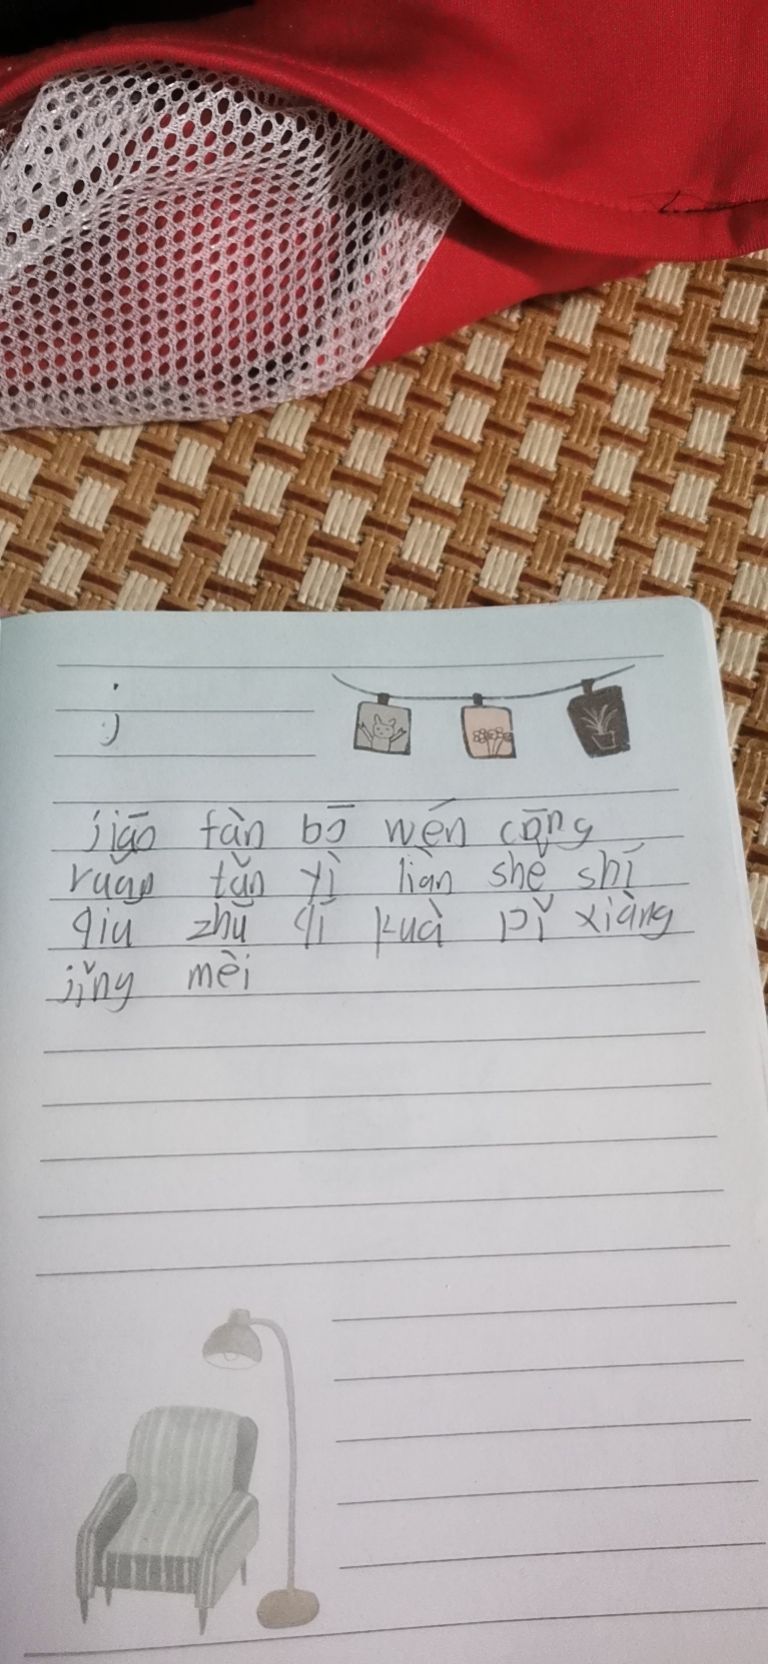 jiāo tàn bō wén cāng
ruǎn tǎn yì liàn shě shí
qiu zhǔ qí kuà pǐ xiàng
jǐng mèi